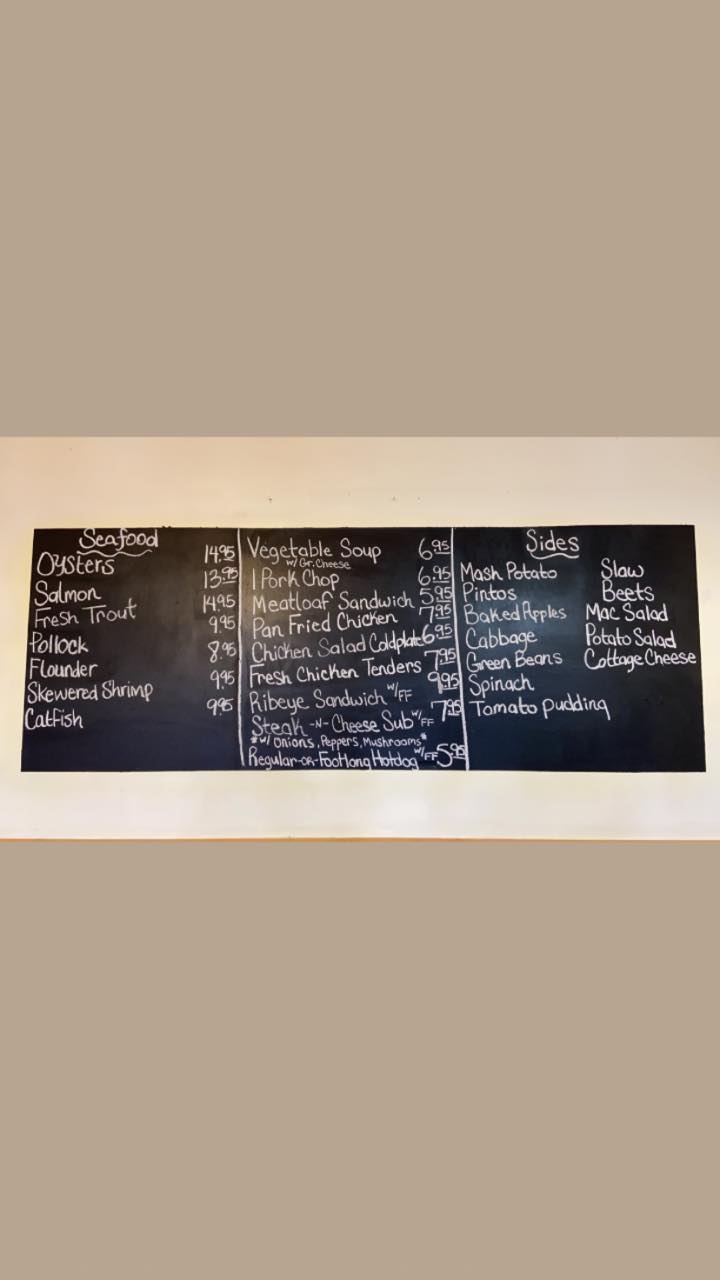 Seafood
Oysters 14.95
Salmon 13.95
Fresh Trout 14.95
Pollock 9.95
Flounder 8.95
Skewered Shrimp 9.95
Catfish 9.95
Vegetable Soup 6.95
w/ Gr. Cheese
1 Pork Chop 6.95
Meatloaf Sandwich 5.95
Pan Fried Chicken 7.95
Chicken Salad Coldplate 6.95
Fresh Chicken Tenders 7.95
Ribeye Sandwich w/FF 9.95
Steak -N- Cheese Sub w/FF 7.95
*w/ Onions, Peppers, Mushrooms*
Regular-OR-Footlong Hotdog w/FF 5.95
Sides
Mash Potato
Pintos
Baked Apples
Cabbage
Green Beans
Spinach
Tomato pudding
Slaw
Beets
Mac Salad
Potato Salad
Cottage Cheese